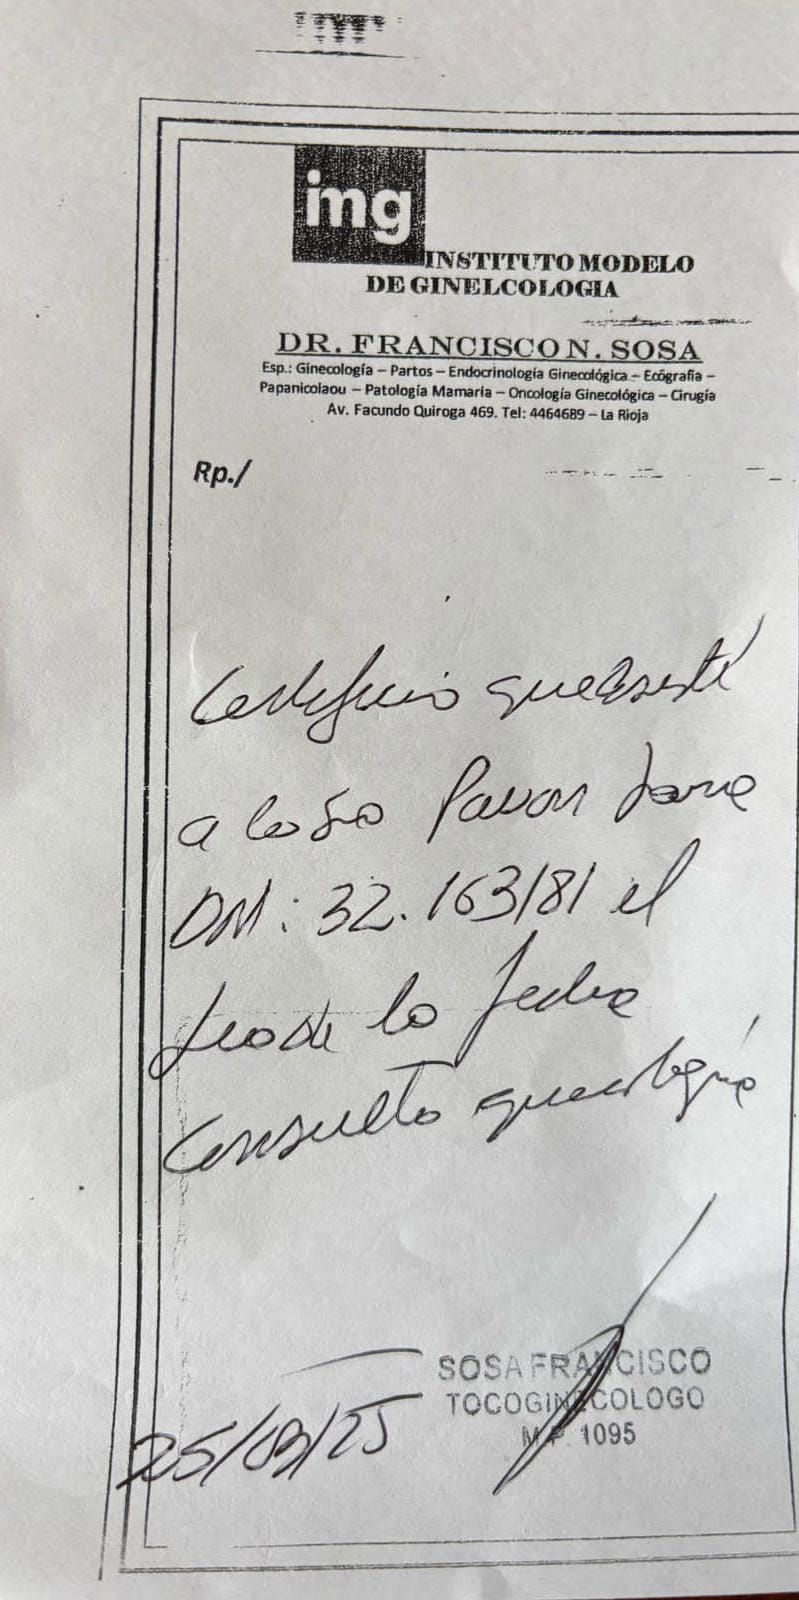 img
INSTITUTO MODELO
DE GINELCOLOGIA
DR. FRANCISCO N. SOSA
Esp.: Ginecología – Partos – Endocrinología Ginecológica – Ecógrafia –
Papanicolaou – Patología Mamaria – Oncología Ginecológica – Cirugía
Av. Facundo Quiroga 469. Tel: 4464689 – La Rioja
Rp./
Certifico que asistí
a la Pavon
DNI: 32.163181 el
de la fecha
Consulta ginecológica
25/09/25
SOSA FRANCISCO
TOCOGINECOLOGO
M.P. 1095